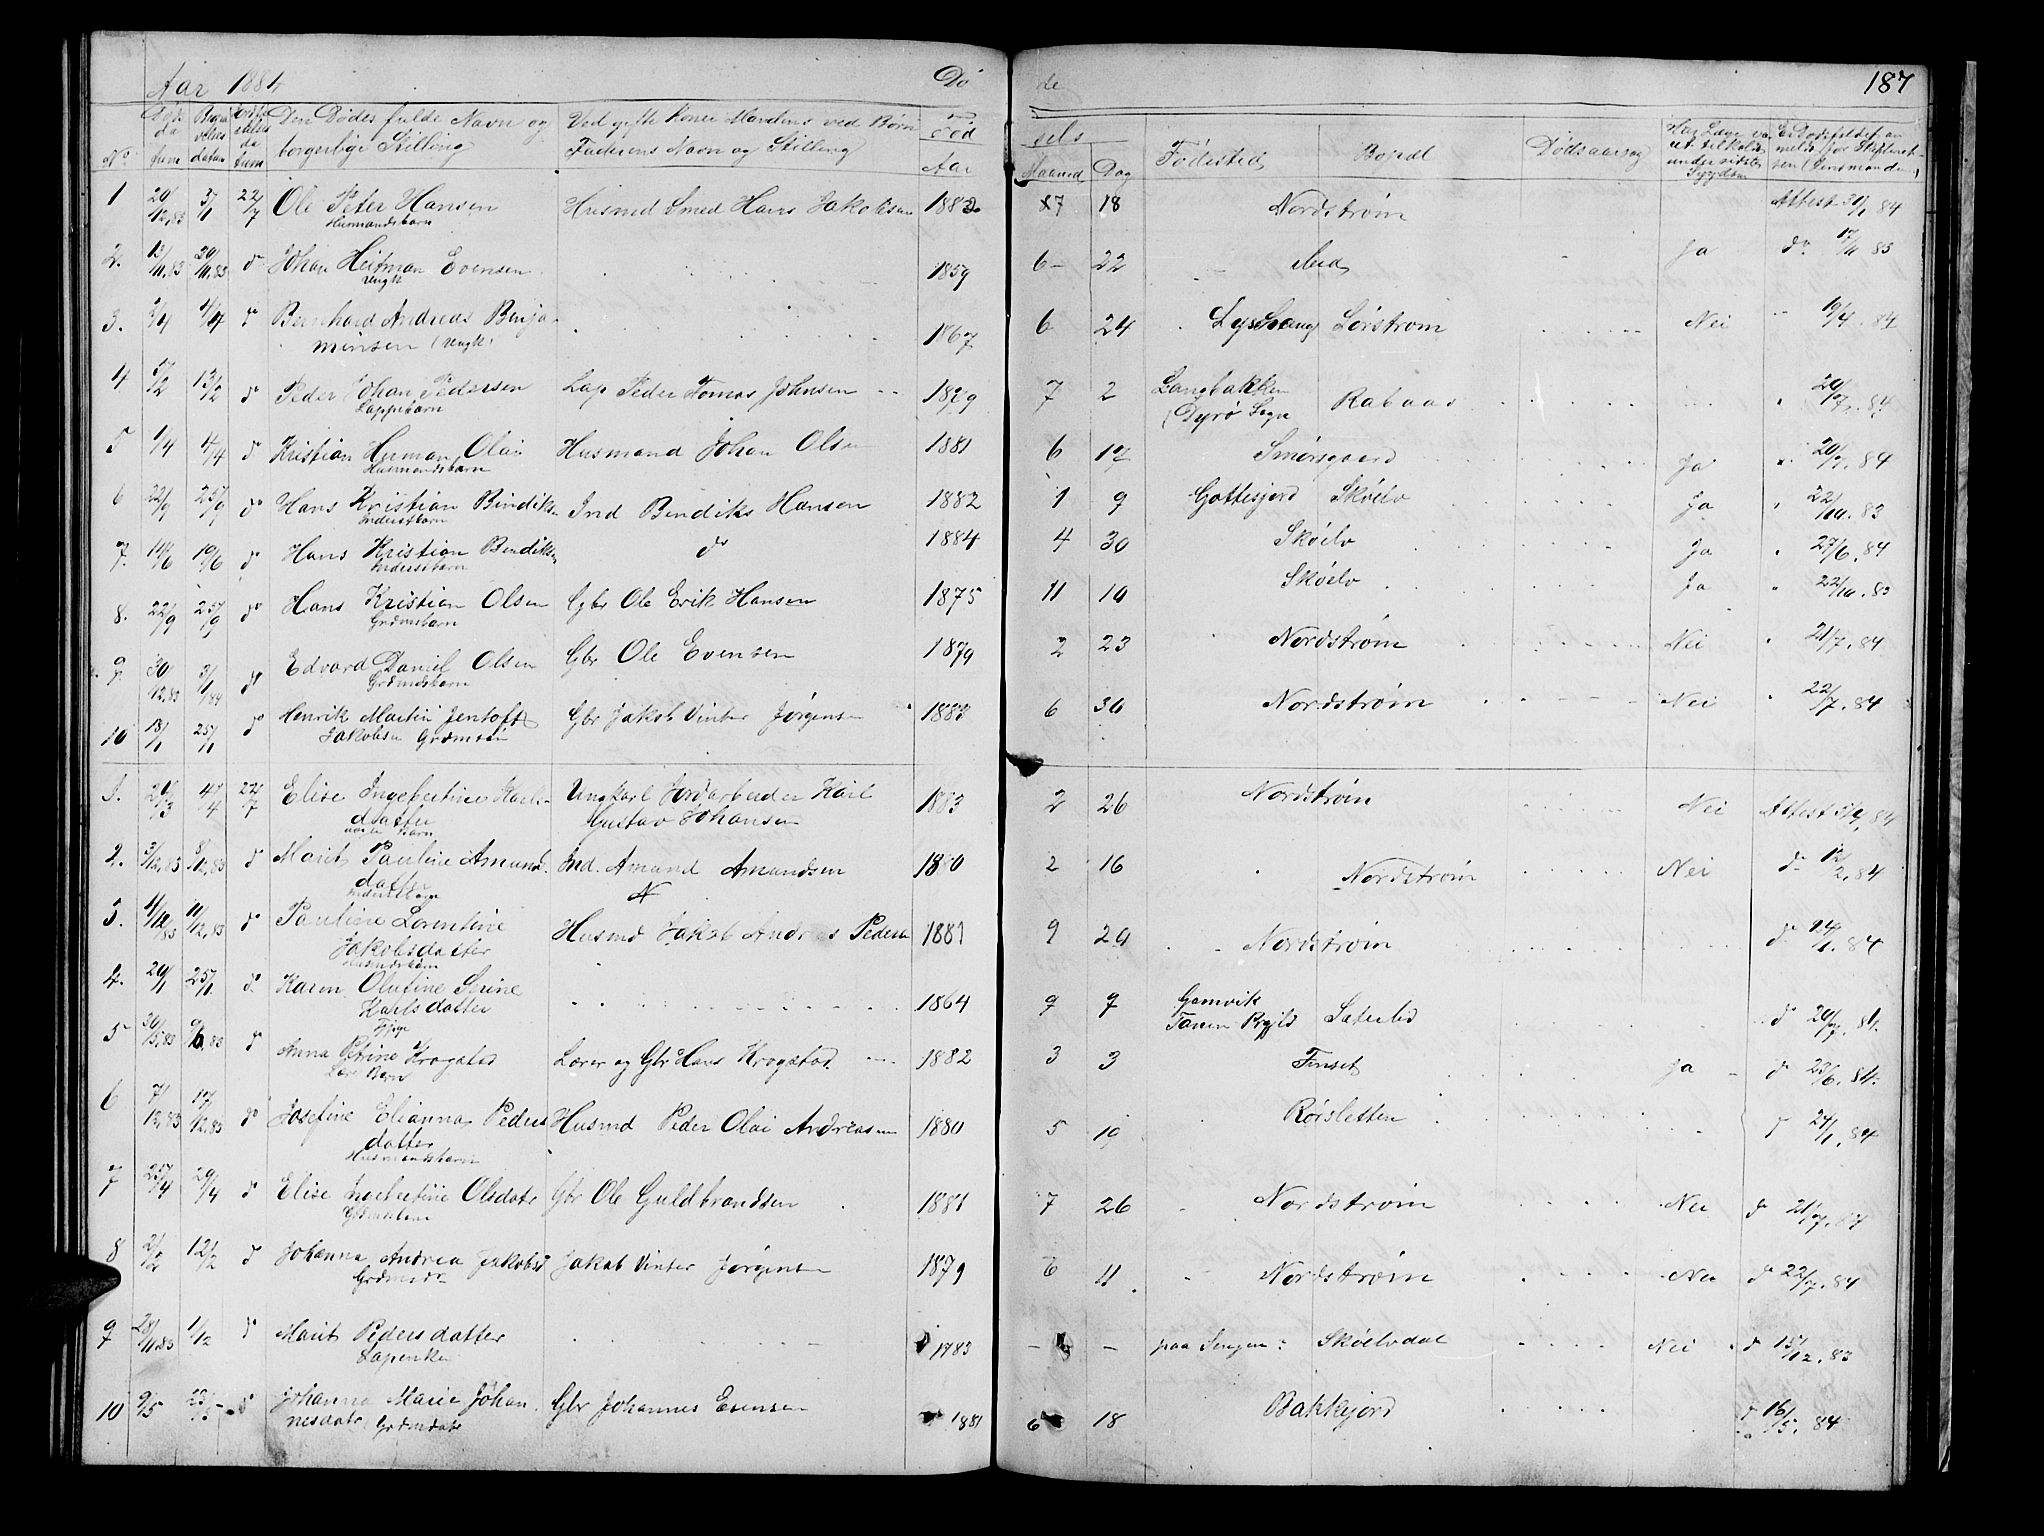 Aar 1884 Dø de 187
No Døds datum Begravelses datum Jordfæstelses datum Den Dødes fulde Navn og borgerlige Stilling Ved gifte Koner Mandens ved Børn Faderens Navn og Stilling Fød Aar sels Maaned Dag Fødested Bopæl Dødsaarsag
1 20/12,83 3/1 22/7 Ole Peter Hansen Husmd Smed Hans Jakobsen 1882 7 18 Nordstrøm Attest 30/1 84
Husmandsbarn
2. 13/11,83 20/11,83 do Johan Heitman Evensen 1859 6 22 Ja do 17/11 83
Ungk
3. 3/4 4/4 do Bernhard Andreas Benja- 1867 6 24 Sørstrøm Nei 19/4 84
minsen (Ungk)
4 5/2 13/2 do Peder Johan Pedersen Lap Peder Tomas Johnsen 1879 7 2 Langbakken Rabaas 20/7. 84
Lappebarn (Dyrø Sogn
5 1/4 4/4 do Kristian Herman Olai Husmand Johan Olsen 1881 6 17 Smørsgaard Ja 20/7. 84
Husmandsbarn
6 22/9 25/9 do Hans Kristian Bendiksen Ind Bendiks Hansen 1882 1 9 Gottesjord Skøelv Ja 22/10. 83
Inderstbarn
7. 14/6 19/6 do Hans Kristian Bendiksen do 1884 4 30 Skøelv Ja 27/6. 84
Inderstbarn
8. 22/9 25/9 do Hans Kristian Olsen Gbr Ole Erik Hansen 1875 11 10 Skøelv Ja 22/10. 83
Grdmsbarn
9. 30/12.83 3/1 84 do Edvard Daniel Olsen Gbr Ole Evensen 1879 2 23 Nordstrøm Nei 21/7. 84
Grdmdsbarn
10 18/1 25/1 do Henrik Martin Jentoft Gbr Jakob Vinter Jørgensen 1883 6 30 Nordstrøm Nei 22/7. 84
Jakobsen Grdmsøn
1. 20/3 4/4 22/7 Elise Ingebertine Karls- Ungkarl Jordarbeider Karl 1883 2 26 Nordstrøm Nei Attest 84
datter Gustav Johansen
uægte Barn
2. 3/12,83 8/12,83 do Marit Pauline Amund- Ind. Amund Amundsen 1880 2 16 Nordstrøm Nei do 12/2, 84
datter
Inderstbarn
3. 4/12 83 11/12,83 do Pauline Lorentine Husmd Jakob Andreas Pedersen 1881 9 29 Nordstrøm do 24/1. 84
Jakobsdatter
Husmdsbarn
4. 20/1 25/1 do Karen Olufine Serine 1864 9 7 Gamvik Sæterlid do 20/7. 84.
Karlsdatter Tanen Prgjld
Pige
5 30/5,83 6,83 do Anna Petrine Krogstad Lærer og Gbr Hans Krogstad 1882 3 3 Finset Ja do 23/6. 84.
Lær Barn
6 7/12,83 17/12,83 do Josefine Elianna Peders Husmd Peder Olai Andreasen 1880 5 19 Rørsletten do 24/1. 84
datter
Husmandsbarn
7 25/4 29/4 do Elise Ingebertine Olsdatr Gbr Ole Guldbrandsen 1881 7 26 Nordstrøm Nei do 21/7. 84
Grdmsbarn
8 2/2 12/2 do Johanna Andrea Jakobsd Jakob Vinter Jørgensen 1879 6 11 Nordstrøm Nei do 22/7. 84
Grdmsdr
9 28/11.83 1/12 do Marit Pedersdatter 1783 - - paa Senjen Skøelvdal Nei do 15/12. 83
Lapenke
10 9/5 do Johanna Marie Johan Gbr Johannes Evensen 1881 6 18 Bakkejord do 16/5. 84
nesdatr Grdmdatr